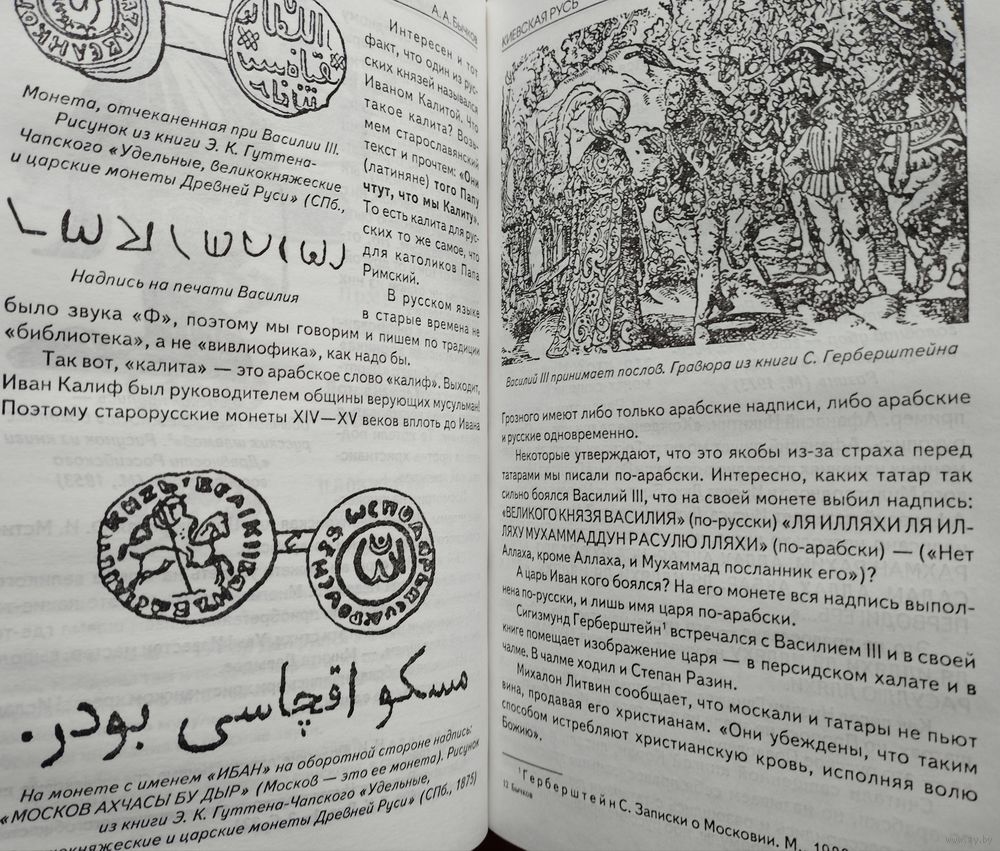 А. А. БЫЧКОВ
Монета, отчеканенная при Василии III.
Рисунок из книги Э. К. Гуттена-
Чапского «Удельные, великокняжеские
и царские монеты Древней Руси» (СПб.,
Надпись на печати Василия
Интересен и тот
факт, что один из рус-
ских князей назывался
Иваном Калитой. Что
такое калита? Возь-
мем старославянский
текст и прочтем: «Они
(латиняне) того Папу
чтут, что мы Калиту».
То есть калита для рус-
ских то же самое, что
для католиков Папа
Римский.
В русском языке
в старые времена не
было звука «Ф», поэтому мы говорим и пишем по традиции
«библиотека», а не «вивлиофика», как надо бы.
Так вот, «калита» — это арабское слово «калиф». Выходит,
Иван Калиф был руководителем общины верующих мусульман!
Поэтому старорусские монеты XIV—XV веков вплоть до Ивана
مسكو اقچاسی بودر.
На монете с именем «ИБАН» на оборотной стороне надпись:
«МОСКОВ АХЧАСЫ БУ ДЫР» (Москов — это ее монета). Рисунок
из книги Э. К. Гуттена-Чапского «Удельные,
великокняжеские и царские монеты Древней Руси» (СПб., 1875)
КИЕВСКАЯ РУСЬ
Василий III принимает послов. Гравюра из книги С. Герберштейна
Грозного имеют либо только арабские надписи, либо арабские
и русские одновременно.
Некоторые утверждают, что это якобы из-за страха перед
татарами мы писали по-арабски. Интересно, каких татар так
сильно боялся Василий III, что на своей монете выбил надпись:
«ВЕЛИКОГО КНЯЗЯ ВАСИЛИЯ» (по-русски) «ЛЯ ИЛЛЯХИ ЛЯ ИЛ-
ЛЯХУ МУХАММАДДУН РАСУЛЮ ЛЛЯХИ» (по-арабски) — («Нет
Аллаха, кроме Аллаха, и Мухаммад посланник его»)?
А царь Иван кого боялся? На его монете вся надпись выпол-
нена по-русски, и лишь имя царя по-арабски.
Сигизмунд Герберштейн¹ встречался с Василием III и в своей
книге помещает изображение царя — в персидском халате и в
чалме. В чалме ходил и Степан Разин.
Михалон Литвин сообщает, что москали и татары не пьют
вина, продавая его христианам. «Они убеждены, что таким
способом истребляют христианскую кровь, исполняя волю
Божию».
¹ Герберштейн С. Записки о Московии. М.,
12 Бычков